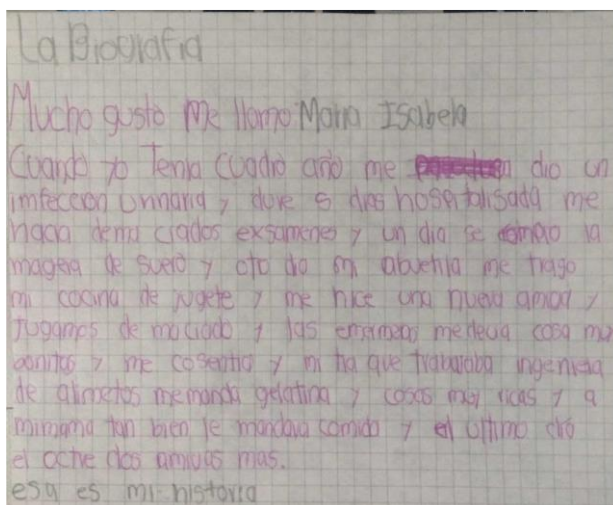 La Biografia
Mucho gusto Me llamo Maria Isabela
Cuando yo Tenia cuadro año me dio un
imfeccion urinaria y dure 5 dias hospitalisada me
hacia dema ciados exsamenes y un dia se la
magera de suero y oto dia mi abuehita me trago
mi cocina de jugete y me hice una nueva amiga y
Jugamos de maciado y las emermeras me decia cosa mui
bonitas y me cosentia y mi tia que trabajaba ingenieria
de alimetos me manda gelatina y cosas muy ricas y a
mimama tan bien le mandava comida y el ultimo dia
el dos amigas mas.
esa es mi historia